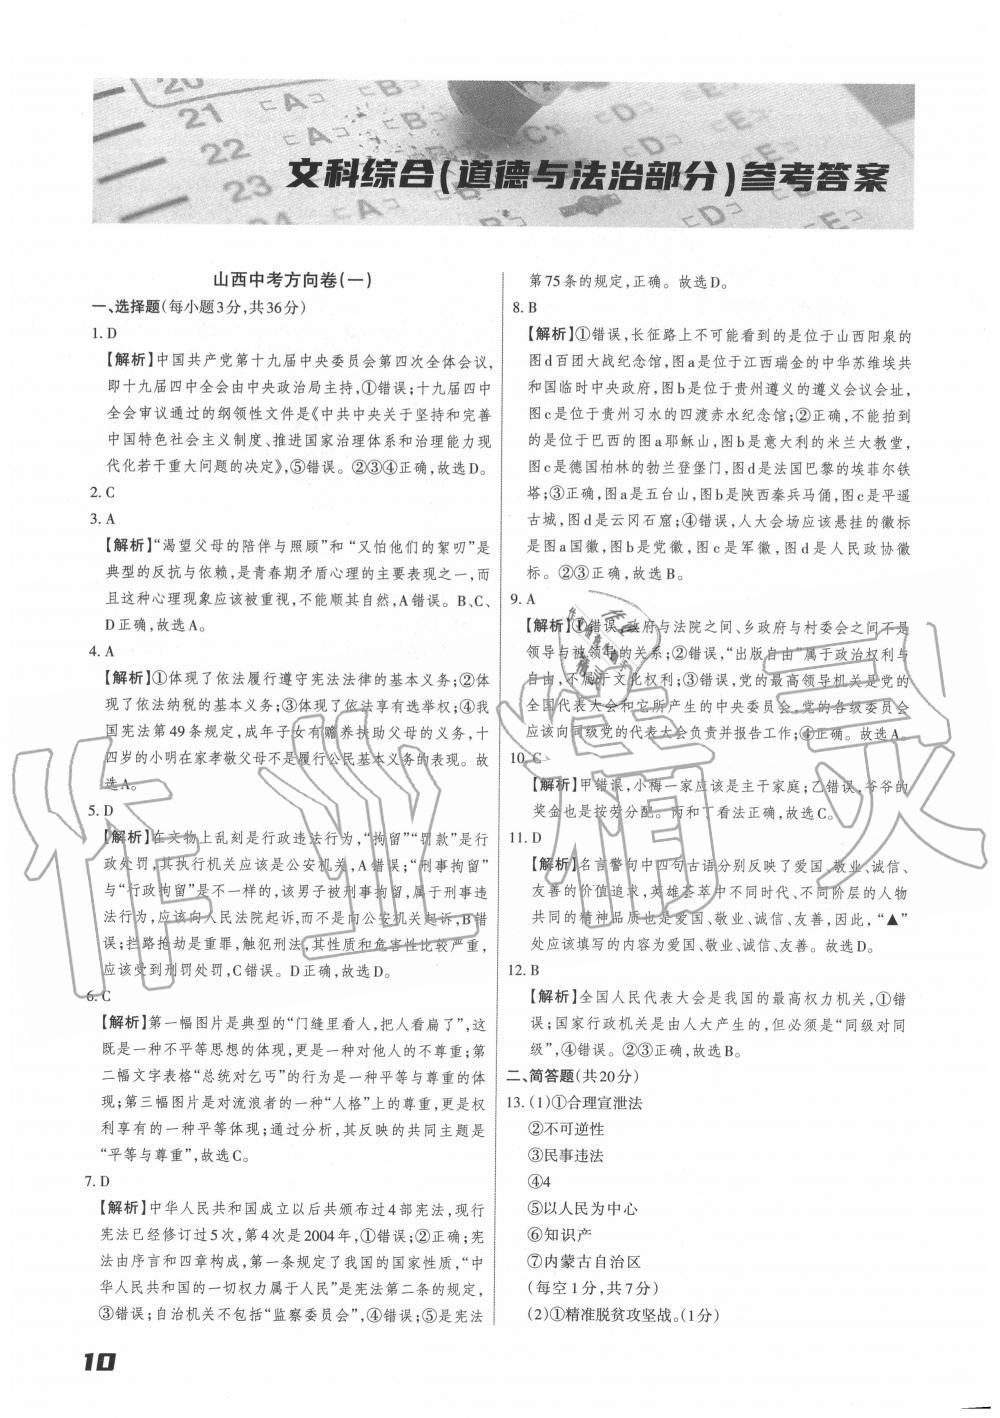 20
21
22
23
24
A
A
A
B
C
D
D
E
文科综合(道德与法治部分)参考答案
山西中考方向卷(一)
一、选择题(每小题3分,共36分)
1. D
【解析】中国共产党第十九届中央委员会第四次全体会议,
即十九届四中全会由中央政治局主持,①错误;十九届四中
全会审议通过的纲领性文件是《中共中央关于坚持和完善
中国特色社会主义制度、推进国家治理体系和治理能力现
代化若干重大问题的决定》,⑤错误。②③④正确,故选D。
2. C
3. A
【解析】“渴望父母的陪伴与照顾”和“又怕他们的絮叨”是
典型的反抗与依赖,是青春期矛盾心理的主要表现之一,而
且这种心理现象应该被重视,不能顺其自然,A错误。B、C、
D正确,故选A。
4. A
【解析】①体现了依法履行遵守宪法法律的基本义务;②体
现了依法纳税的基本义务;③体现了依法享有选举权;④我
国宪法第49条规定,成年子女有赡养扶助父母的义务,十
四岁的小明在家孝敬父母不是履行公民基本义务的表现。故
选A。
5. D
【解析】在文物上乱刻是行政违法行为,“拘留”“罚款”是行
政处罚,其执行机关应该是公安机关,A错误;“刑事拘留”
与“行政拘留”是不一样的,该男子被刑事拘留,属于刑事违
法行为,应该向人民法院起诉,而不是向公安机关起诉,B错
误;拦路抢劫是重罪,触犯刑法,其性质和危害性比较严重,
应该受到刑罚处罚,C错误。D正确,故选D。
6. C
【解析】第一幅图片是典型的“门缝里看人,把人看扁了”,这
既是一种不平等思想的体现,更是一种对他人的不尊重;第
二幅文字表格“总统对乞丐”的行为是一种平等与尊重的体
现;第三幅图片是对流浪者的一种“人格”上的尊重,更是权
利享有的一种平等体现;通过分析,其反映的共同主题是
“平等与尊重”,故选C。
7. D
【解析】中华人民共和国成立以后共颁布过4部宪法,现行
宪法已经修订过5次,第4次是2004年,①错误;②正确;宪
法由序言和四章构成,第一条规定了我国的国家性质,“中
华人民共和国的一切权力属于人民”是宪法第二条的规定,
③错误;自治机关不包括“监察委员会”,④错误;⑤是宪法
第75条的规定,正确。故选D。
8. B
【解析】①错误,长征路上不可能看到的是位于山西阳泉的
图d百团大战纪念馆,图a是位于江西瑞金的中华苏维埃共
和国临时中央政府,图b是位于贵州遵义的遵义会议会址,
图c是位于贵州习水的四渡赤水纪念馆;②正确,不能拍到
的是位于巴西的图a耶稣山,图b是意大利的米兰大教堂,
图c是德国柏林的勃兰登堡门,图d是法国巴黎的埃菲尔铁
塔;③正确,图a是五台山,图b是陕西秦兵马俑,图c是平遥
古城,图d是云冈石窟;④错误,人大会场应该悬挂的徽标
是图a国徽,图b是党徽,图c是军徽,图d是人民政协徽
标。②③正确,故选B。
9. A
【解析】①错误,政府与法院之间、乡政府与村委会之间不是
领导与被领导的关系;②错误,“出版自由”属于政治权利与
自由,不属于文化权利;③错误,党的最高领导机关是党的
全国代表大会和它所产生的中央委员会,党的各级委员会
应该向同级党的代表大会负责并报告工作;④正确。故选A。
10. C
【解析】甲错误,小梅一家应该是主干家庭;乙错误,爷爷的
奖金也是按劳分配。丙和丁看法正确,故选C。
11. D
【解析】名言警句中四句古语分别反映了爱国、敬业、诚信、
友善的价值追求,英雄荟萃中不同时代、不同阶层的人物
共同的精神品质也是爱国、敬业、诚信、友善,因此,“▲”
处应该填写的内容为爱国、敬业、诚信、友善。故选D。
12. B
【解析】全国人民代表大会是我国的最高权力机关,①错
误;国家行政机关是由人大产生的,但必须是“同级对同
级”,④错误。②③正确,故选B。
二、简答题(共20分)
13. (1)①合理宣泄法
②不可逆性
③民事违法
④4
⑤以人民为中心
⑥知识产
⑦内蒙古自治区
(每空1分,共7分)
(2)①精准脱贫攻坚战。(1分)
10
作业精灵